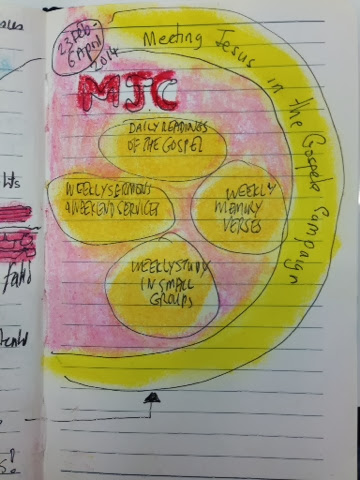 23 Feb -
6 April
2014
Meeting Jesus in the Gospels Campaign
MJC
DAILY READINGS
OF THE GOSPEL
WEEKLY SERMONS
@ WEEKEND SERVICES
WEEKLY
MEMORY
VERSES
WEEKLY STUDY
IN SMALL
GROUPS